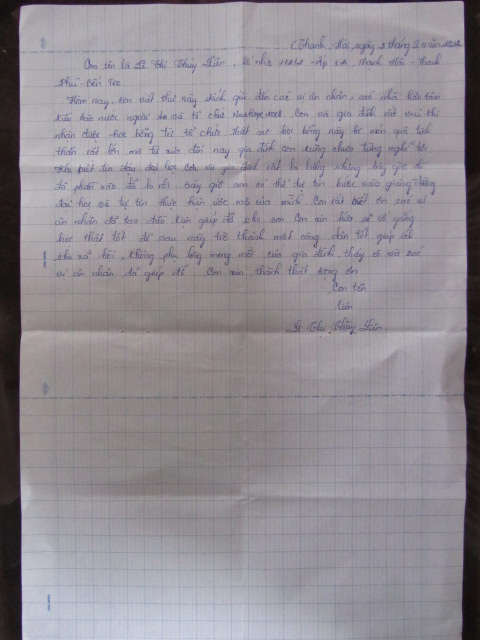 Thạnh Hải, ngày 2 tháng 9 năm
Con tên là Lê Thị Thùy Liên, số nhà ấp Thạnh Hải - Thạnh
Phú - Bến Tre
Hôm nay, con viết thư này kính gửi đến các vị ân nhân, các nhà hảo tâm
kiều bào nước người và tổ chức Con và gia đình rất vui khi
nhận được học bổng từ tổ chức. Thật sự học bổng này là món quà tinh
thần rất lớn, mà từ xưa đến nay gia đình con cũng chưa từng nghĩ tới.
Khi biết tin đậu đại học con và gia đình rất lo lắng nhưng bây giờ thì
đã phần nào đỡ lo rồi. Bây giờ con có thể tự tin bước vào giảng đường
đại học và tự tin thực hiện ước mơ của mình. Con rất biết ơn các vị
ân nhân đã tạo điều kiện giúp đỡ cho con. Con xin hứa sẽ cố gắng
học thật tốt để sau này trở thành một công dân tốt giúp ích
cho xã hội, không phụ lòng mong mỏi của gia đình, thầy cô và các
vị ân nhân đã giúp đỡ. Con xin thành thật cảm ơn.
Con tên
Liên
Lê Thị Thùy Liên